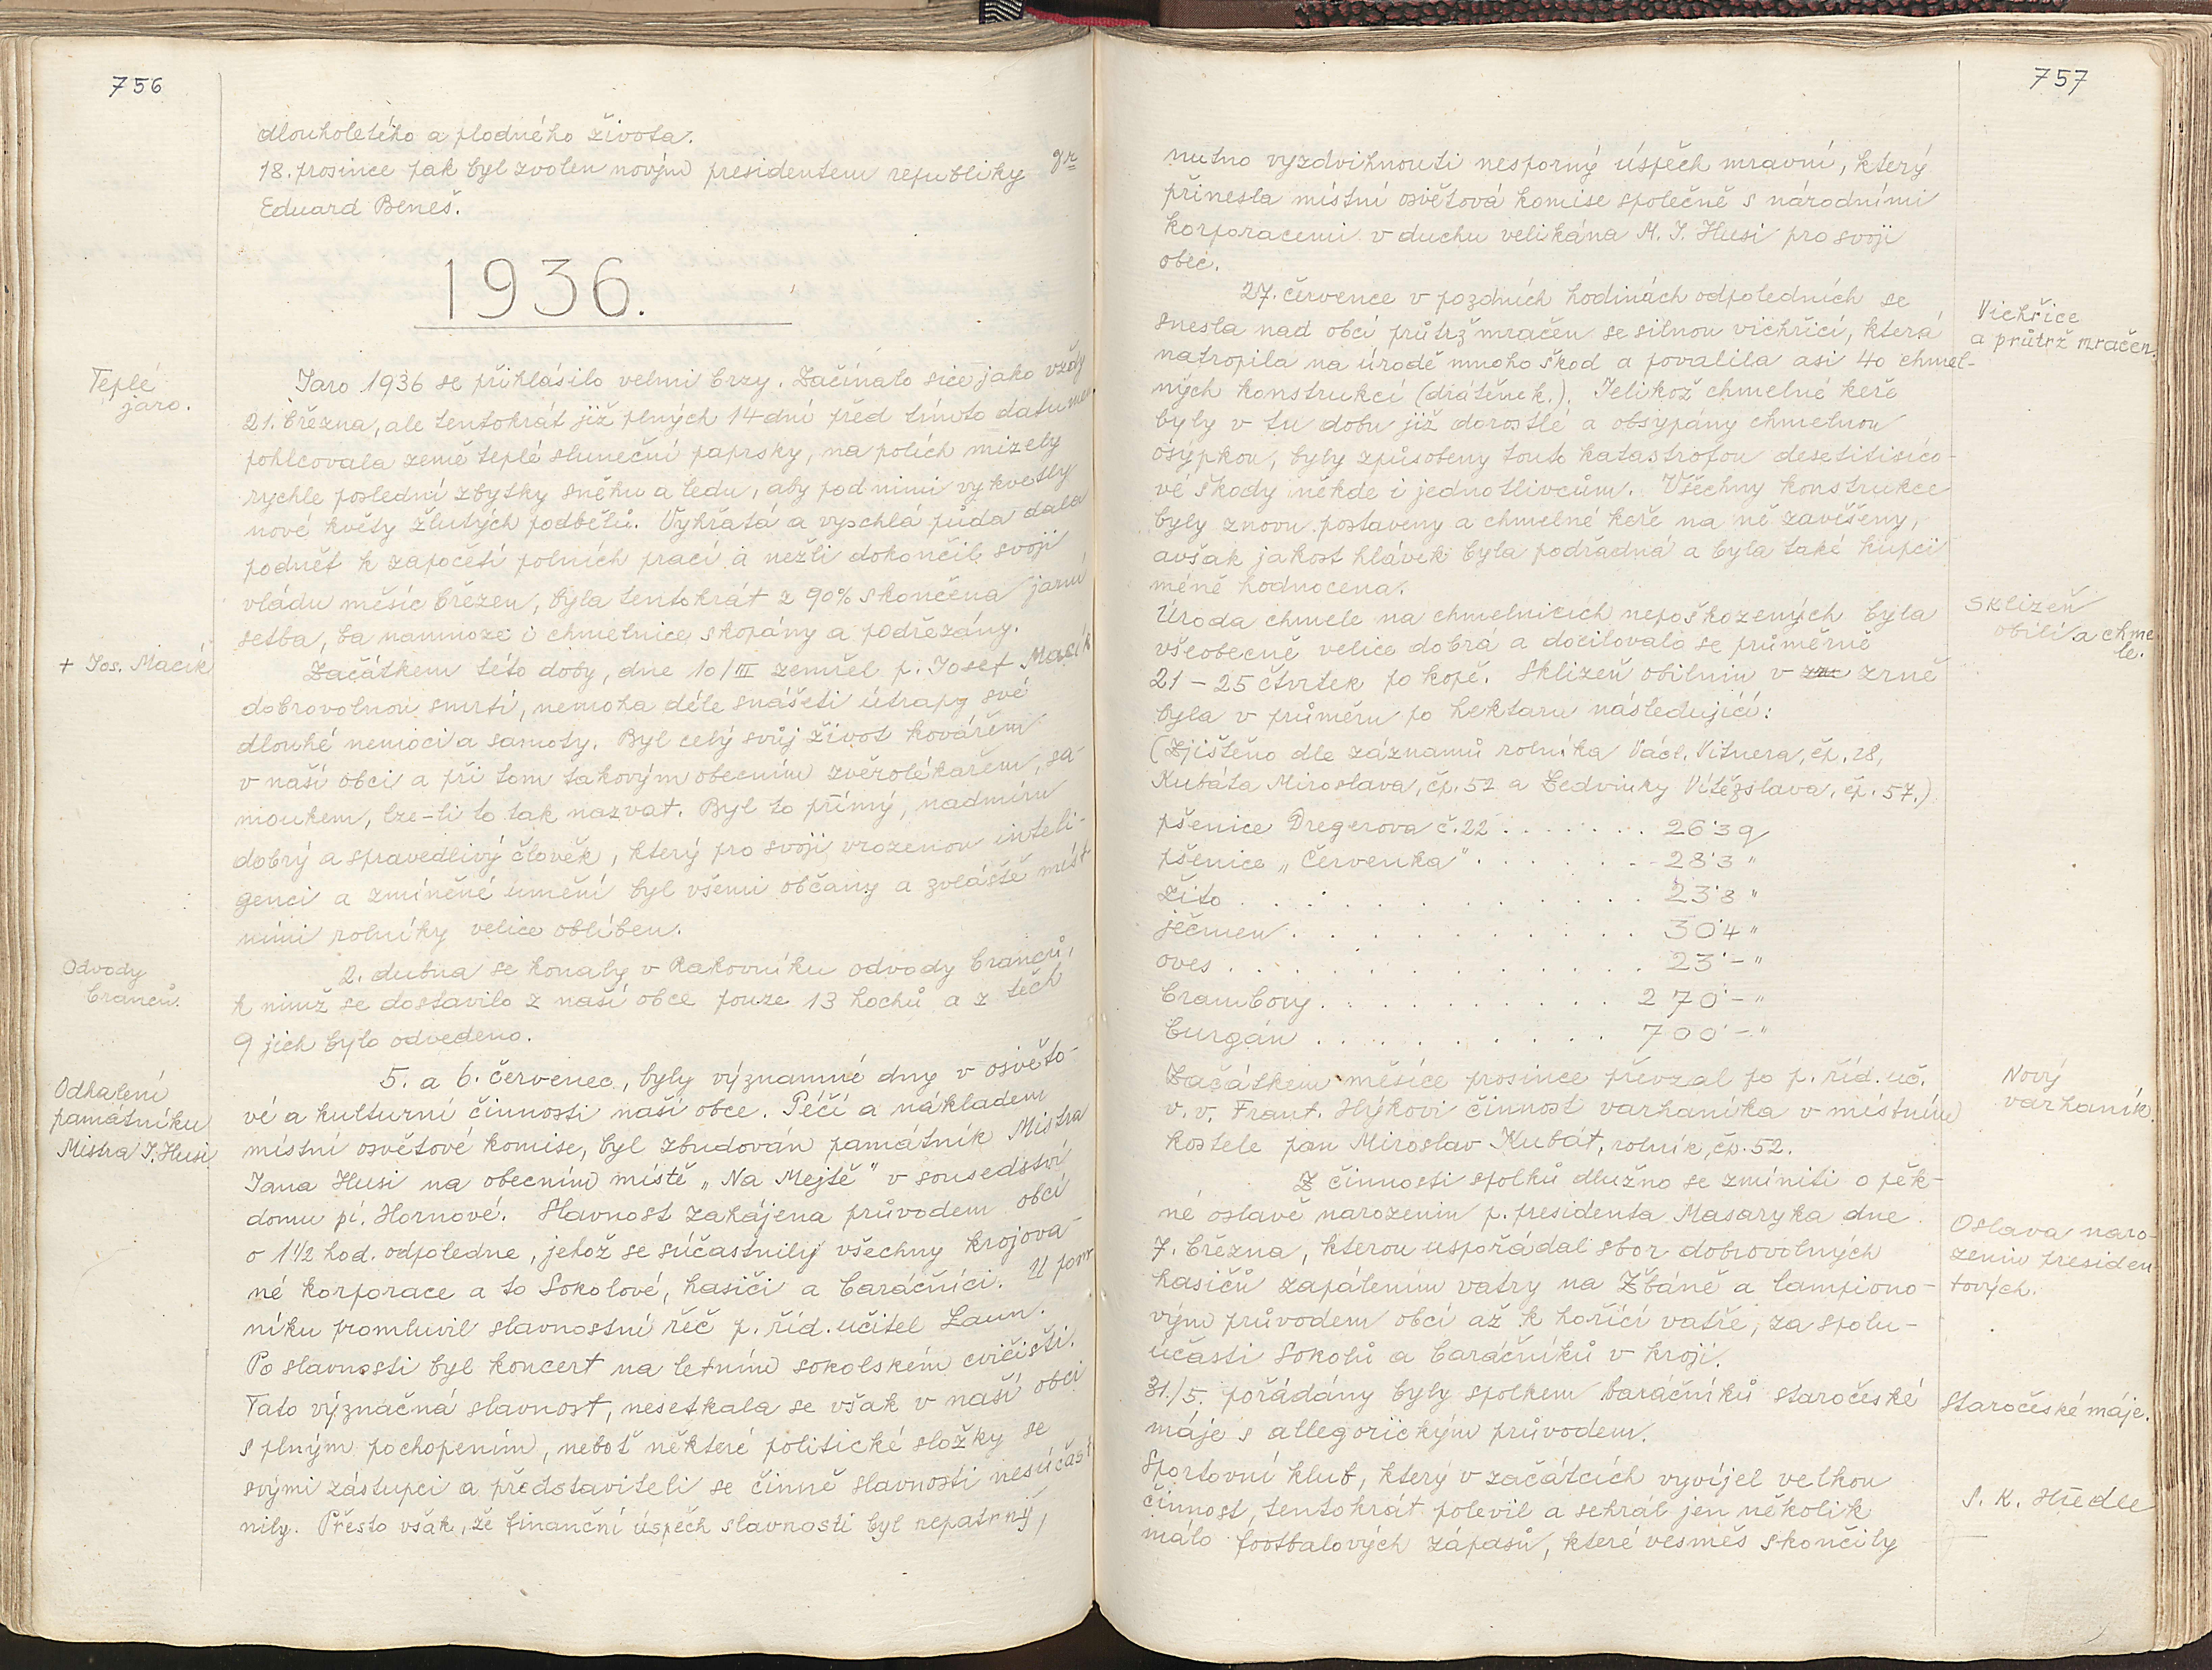 756
dlouholetého a plodného života.
18. prosince pak byl zvolen novým presidentem republiky Dr
Eduard Beneš.
1936.
Teplé
jaro.
Jaro 1936 se přihlásilo velmi brzy. Začínalo sice jako vždy
21. března, ale tentokrát již plných 14 dní před tímto datumem
pohlcovala země teplé sluneční paprsky, na polích mizely
rychle poslední zbytky sněhu a ledu, aby pod nimi vykvetly
nové květy žlutých podbělů. Vyhřátá a vyschlá půda dala
podnět k započetí polních prací a nežli dokončil svoji
vládu měsíc březen, byla tentokrát z 90% skončena jarní
setba, ba namnoze i chmelnice skopány a podřezány.
+ Jos. Macík
Začátkem této doby, dne 10/III zemřel p. Josef Macík
dobrovolnou smrtí, nemoha déle snášeti útrapy své
dlouhé nemoci a samoty. Byl celý svůj život kovářem
v naší obci a při tom takovým obecním zvěrolékařem, sa-
moukem, lze-li to tak nazvat. Byl to přímý, nadmíru
dobrý a spravedlivý člověk, který pro svoji vrozenou inteli-
genci a zmíněné umění byl všemi občany a zvláště míst
ními rolníky velice oblíben.
Odvody
branců.
2. dubna se konaly v Rakovníku odvody branců,
k nimž se dostavilo z naší obce pouze 13 hochů a z těch
9 jich bylo odvedeno.
Odhalení
památníku
Mistra J. Husi
5. a 6. červenec, byly významné dny v osvěto-
vé a kulturní činnosti naší obce. Péčí a nákladem
místní osvětové komise, byl zbudován památník Mistra
Jana Husi na obecním místě „Na Mejtě" v sousedství
domu pí. Hornové. Slavnost zahájena průvodem obcí
o 1½ hod. odpoledne, jehož se súčastnily všechny krojova-
né korporace a to Sokolové, hasiči a baráčníci. U pom
níku promluvil slavnostní řeč p. říd. učitel Laun.
Po slavnosti byl koncert na letním sokolském cvičišti.
Tato význačná slavnost, nesetkala se však v naší obci
s plným pochopením, neboť některé politické složky se
svými zástupci a představiteli se činně slavnosti nesúčast
nily. Přesto však, že finanční úspěch slavnosti byl nepatrný,
757
nutno vyzdvihnouti nesporný úspěch mravní, který
přinesla místní osvětová komise společně s národními
korporacemi v duchu velikána M. J. Husi pro svoji
obec.
Vichřice
a průtrž mračen.
27. července v pozdních hodinách odpoledních se
snesla nad obcí průtrž mračen se silnou vichřicí, která
natropila na úrodě mnoho škod a povalila asi 40 chmel-
ných konstrukcí (drátěnek.). Jelikož chmelné keře
byly v tu dobu již dorostlé a obsypány chmelnou
osýpkou, byly způsobeny touto katastrofou desetitisíco-
vé škody někde i jednotlivcům. Všechny konstrukce
byly znovu postaveny a chmelné keře na ně zavěšeny,
avšak jakost hlávek byla podřadná a byla také kupci
méně hodnocena.
Sklizeň
obilí a chme
le.
Úroda chmele na chmelnicích nepoškozených byla
všeobecně velice dobrá a docilovalo se průměrně
21 – 25 čtvrtek po kopě. Sklizeň obilnin v zrně
byla v průměru po hektaru následující:
(Zjištěno dle záznamů rolníka Václ. Vitnera, čp. 28,
Kubáta Miroslava, čp. 52 a Ledvinky Vítězslava, čp. 57.)
pšenice Dregerova č. 22 . . . . . . . 26'3 q
pšenice „Červenka" . . . . . . . 28'3 "
Žito . . . . . . . . . . . . 23'8 "
ječmen . . . . . . . . . . . 30'4 "
oves . . . . . . . . . . . . 23'– "
brambory . . . . . . . . . . 270'– "
burgán . . . . . . . . . . 700'– "
Nový
varhaník
Začátkem měsíce prosince převzal po p. říd. uč.
v. v. Frant. Hýkovi činnost varhaníka v místním
kostele pan Miroslav Kubát, rolník, čp. 52.
Z činnosti spolků dlužno se zmíniti o pěk-
né oslavě narozenin p. presidenta Masaryka dne
Oslava naro-
zenin presiden
tových.
7. března, kterou uspořádal sbor dobrovolných
hasičů zapálením vatry na Žbáně a lampiono-
vým průvodem obcí až k hořící vatře, za spolu-
účasti Sokolů a baráčníků v kroji.
Staročeské máje.
31./5. pořádány byly spolkem baráčníků staročeské
máje s allegorickým průvodem.
S. K. Hředle
Sportovní klub, který v začátcích vyvíjel velkou
činnost, tentokrát polevil a sehrál jen několik
málo footbalových zápasů, které vesměs skončily